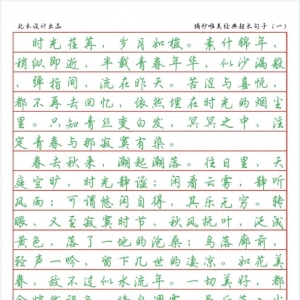 北禾设计出品 摘抄唯美经典超长句子（一）
时光荏苒，岁月如梭。素什锦年，
稍纵即逝，半载青春年华，似沙漏般
，弹指间，流在昨天。苦涩与喜悦，
都不再去回忆，依然埋在时光的烟尘
里。只知青丝变白发，冥冥之中，注
定青春与那寂寞有染。
春去秋来，潮起潮落。往日里，天
庭空旷，时光静谧；闲看云雾，静听
风雨；可谓悠闲自得，其乐无穷。转
眼，又至寂寞时节，秋风梳叶，泛成
黄色，落了一地的沧桑；鸟落廊前，
轻声一吟，留下几世的凄凉。如花美
眷，敌不过似水流年。一切美好，都